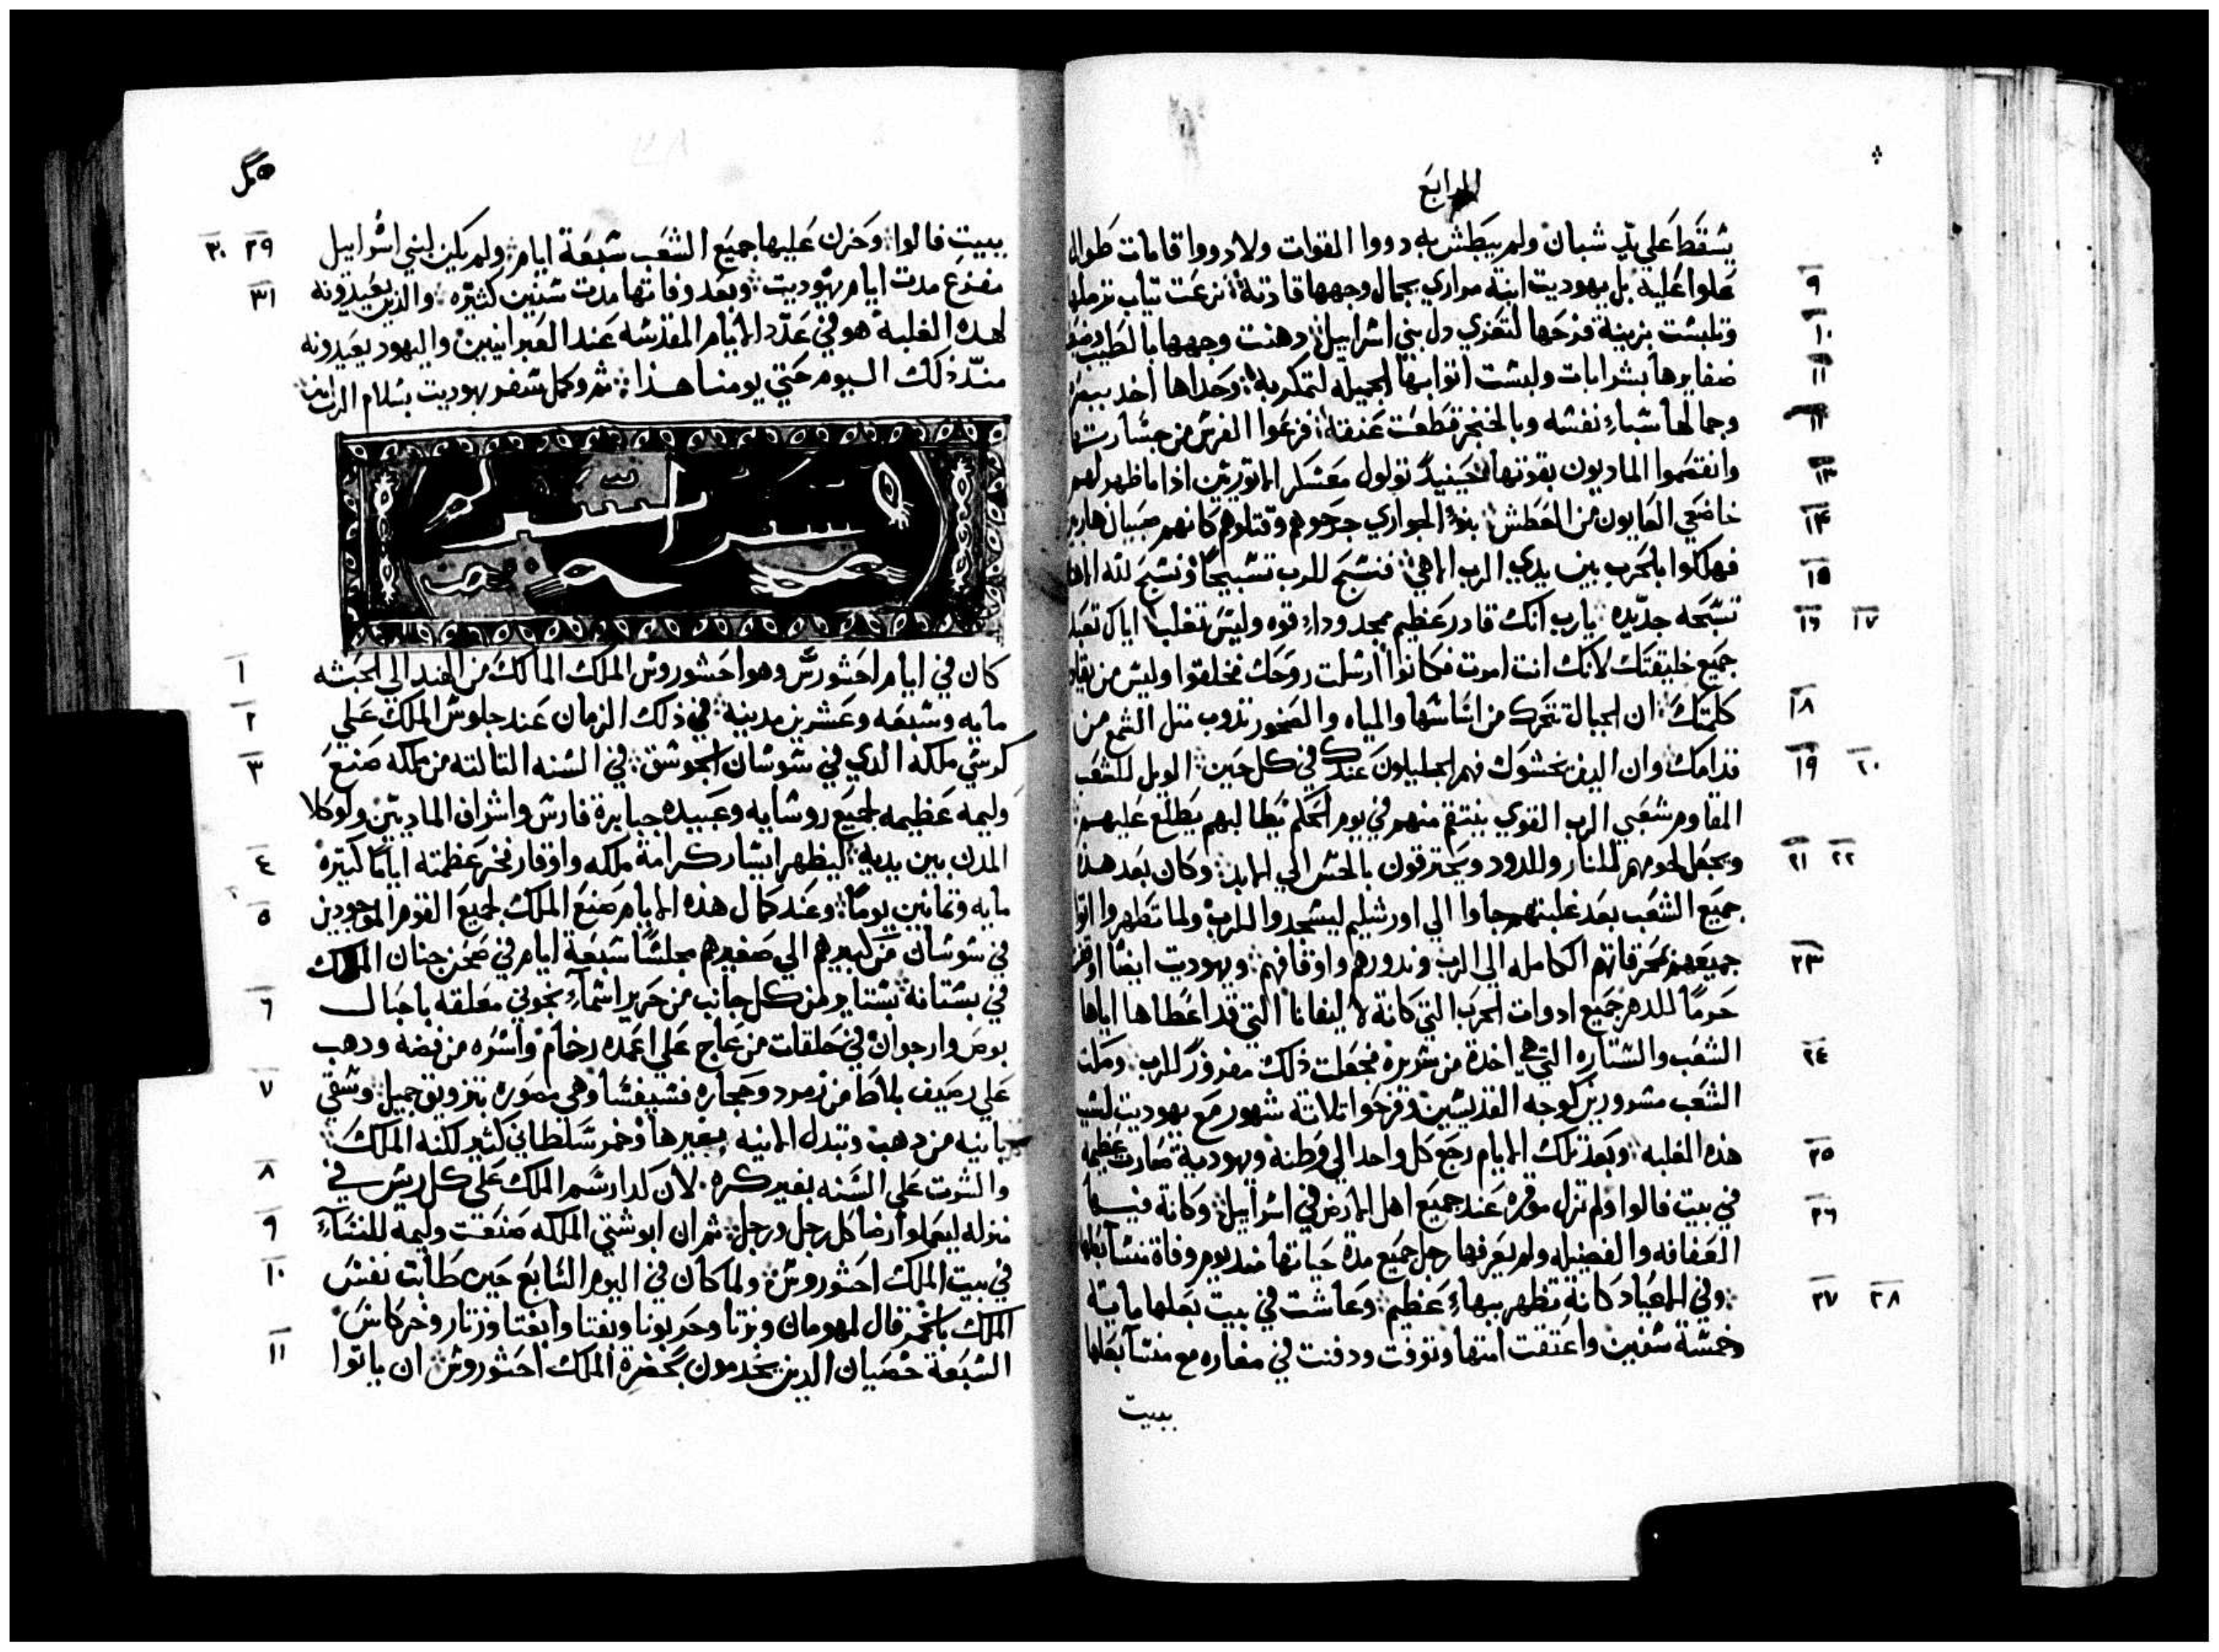 الرابع
يسقط علي يد شبان ولم يبطش به دووا القوات ولا دووا قامات طوال
٩ علوا عليه بل يهوديت ابنة مراري بجمال وجهها قادته نزعت تياب ترملها
١٠ وتلبست بزينة فرحها لتعزي دل بني اسراييل دهنت وجهها بالطيب وضفر
١١ ضفايرها بشرابات ولبست اتوابها الجميله لتمكر به وحداها اخد ببصره
١٢ وجمالها سباء نفسه وبالخنجر قطعت عنقه فزعوا الفرس من جسارتها
١٣ وانفتضحوا الماديون بقوتها حينيد تولول معسكر الاتوريين اذا ما ظهر لهم
١٤ خاضعي العايون من العطش بنو الجواري جرحوهم وقتلوهم كانهم صبيان هاربين
١٥ فهلكوا بالحرب بين يدي الرب الاهي فنسبح للرب تسبيحا ونسبح لله الاهنا
١٦ ١٧ تسبحه جديده يارب انك قادر عظيم ممجد وداء قوه وليس تغلب اياك تعبد
جميع خليقتك لانك انت امرت فكانوا ارسلت روحك فخلقوا وليس من يقاوم
١٨ كلمتك ان الجبال تتحرك من اساسها والمياه والصخور تذوب متل الشمع من
١٩ ٢٠ قدامك وان الدين يخشوك فهم الجليلون عندك في كل حين الويل للشعب
المقاوم شعبي الرب القوي ينتقم منهم في يوم الحكم يطالبهم يطلع عليهم
٢١ ٢٢ ويجعل لحومهم للنار وللدود ويحترقون بالحس الي الابد وكان بعد هذا
جميع الشعب بعد غلبتهم جاوا الي اورشليم ليسجدوا للرب ولما تطهروا اتوا
٢٣ جميعهم بمحرقاتهم الكامله الي الرب وندورهم واوقافهم ويهوديت ايضا اوقفت
حرما للدهر جميع ادوات الحرب التي كانة لاليفانا التي قد اعطاها اياها
٢٤ الشعب والستاره التي هي اخدة من سريره فجعلت ذلك مفروز للرب وملت
الشعب مسرورين كوجه القديسين وفرحوا تلاتة شهور مع يهوديت لسبب
٢٥ هذه الغلبه وبعد تلك الايام رجع كل واحد الي وطنه ويهودية صارت عظيمه
٢٦ في بيت فالوا ولم تزل موقره عند جميع اهل الارض في اسراييل وكانة فيها
العفافه والفضيله ولم يعرفها رجل جميع مدة حياتها مند يوم وفاة منسا بعلها
٢٧ ٢٨ وفي الاعياد كانة تظهر ببهاء عظيم وعاشت في بيت بعلها ماية
وخمسة سنين واعتقت امتها وتوفت ودفنت في مغاره مع منسا بعلها
ببيت
٢٩ ٣٠ ببيت فالوا وحزن عليها جميع الشعب سبعة ايام ولم يكن لبني اسراييل
٣١ مفزع مدت ايام يهوديت وبعد وفاتها مدت سنين كتيره والذين يعيدونه
لهده الغلبة هو في عدد الايام المقدسه عند العبرانيين واليهود يعيدونه
مند ذلك اليوم حتي يومنا هذا تم وكمل سفر يهوديت بسلام الرب امين
١ كان في ايام احشورش وهو احشوروش الملك المالك من الهند الي الحبشه
٢ مايه وسبعه وعشرين مدينه في ذلك الزمان عند جلوس الملك علي
٣ كرسي ملكه الدي في شوشان الجوسق في السنه التالته من ملكه صنع
وليمه عظيمه لجميع روسايه وعبيده جبابرة فارس واشراف الماديين ووكلا
٤ المدن بين يديه ليظهر ايسار كرامة ملكه واوقار فخر عظمته اياما كتيره
٥ مايه وتمانين يوما وعند كمال هذه الايام صنع الملك لجميع القوم الموجودين
في شوشان من كبيرهم الي صغيرهم مجلسا سبعة ايام في صحن جنان الملك
٦ في بستانه بستاير من كل جانب من حرير اسمانجوني معلقه باحبال
بوص وارجوان في حلقات من عاج علي اعمده رخام واسره من فضه ودهب
٧ علي رصيف بلاط من زمرد وحجاره فسيفسا وهي مصوره بتزويق جميل وسقي
بانيه من دهب وتبدل الانيه بغيرها وخمر سلطاني كتير لكنه الملك
٨ والشرب علي السنه بغير كره لان كدا رسم الملك علي كل ريس في
٩ منزله ليعملوا رضا كل رجل ورجل تم ان ابوشتي الملكه صنعت وليمه للنساء
١٠ في بيت الملك احشوروش ولما كان في اليوم السابع حين طابت نفس
الملك بالخمر قال لمهومان وبزتا وحربونا وبغتا وابغتا وزتار وخركاس
١١ السبعة خصيان الدين يخدمون بحضرة الملك احشوروش ان ياتوا